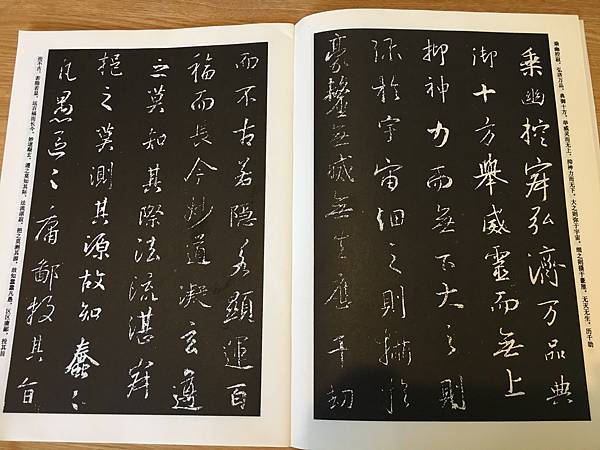 乘幽控寂，弘济万品，典御十方，举威灵而无上，抑神力而无下，大之则弥于宇宙，细之则摄于毫厘，无灭无生，历千劫
乘幽控寂弘濟万品典
御十方舉威靈而無上
抑神力而無下大之則
弥於宇宙細之則攝於
豪釐無滅無生歷千劫
而不古若隱若顯運百
福而長今妙道凝玄遵
之莫知其際法流湛寂
挹之莫測其源故知蠢〻
凡愚區〻庸鄙投其旨
而不古，若隐若显，运百福而长今，妙道凝玄，遵之莫知其际，法流湛寂，挹之莫测其源，故知蠢蠢凡愚，区区庸鄙，投其旨